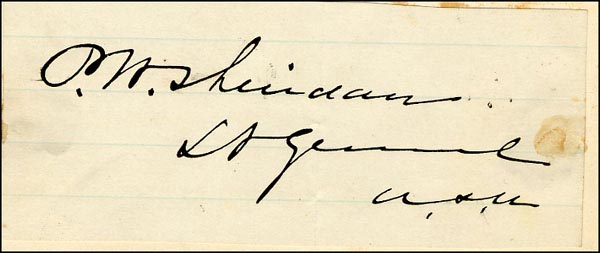 P. H. Sheridan
Lt General
U.S.A